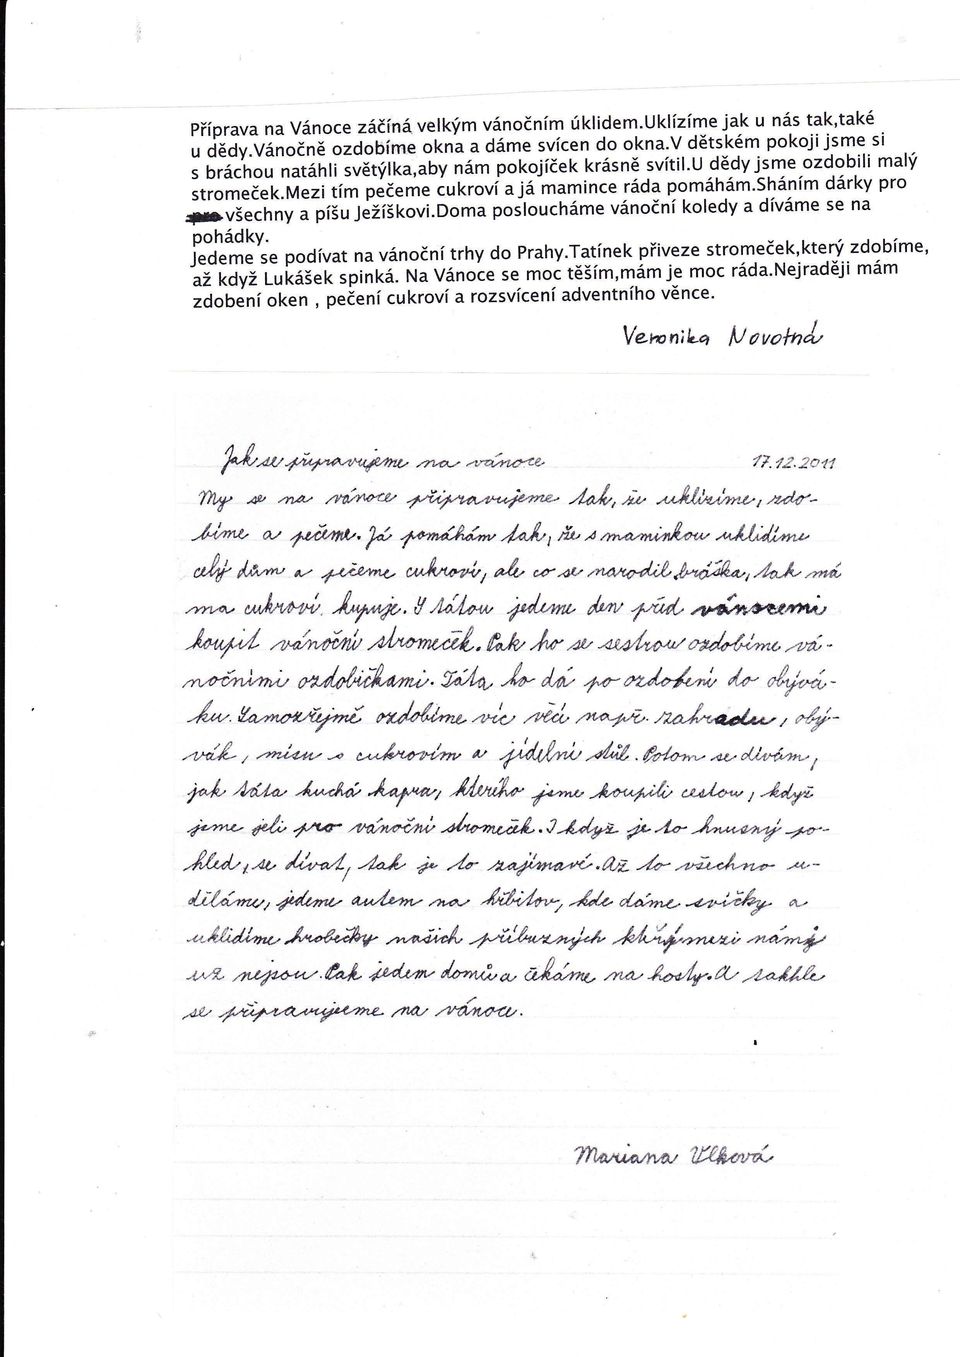 Příprava na Vánoce záčíná velkým vánočním úklidem.Uklízíme jak u nás tak,také
u dědy.Vánočně ozdobíme okna a dáme svícen do okna.V dětském pokoji jsme si
s bráchou natáhli světýlka,aby nám pokojíček krásně svítil.U dědy jsme ozdobili malý
stromeček.Mezi tím pečeme cukroví a já mamince ráda pomáhám.Sháním dárky pro
všechny a píšu Ježíškovi.Doma posloucháme vánoční koledy a díváme se na
pohádky.
Jedeme se podívat na vánoční trhy do Prahy.Tatínek přiveze stromeček,který zdobíme,
až když Lukášek spinká. Na Vánoce se moc těším,mám je moc ráda.Nejraději mám
zdobení oken , pečení cukroví a rozsvícení adventního věnce.
Veronika Novotná
Jak se připravujeme na vánoce 17.12.2011
My se na vánoce připravujeme tak, že uklízíme, zdo-
bíme a pečeme. Já pomáhám tak, že s maminkou uklidíme
celý dům a pečeme cukroví, ale co se narodil bráška, tak má
ma cukroví kupuje. S tátou jedeme den před vánocemi
koupit vánoční stromeček. Pak ho se sestrou ozdobíme vá-
nočními ozdobičkami. Táta ho dá po ozdobení do obývá-
ku. Samozřejmě ozdobíme víc věcí např. zahradu, obý-
vák, mísu s cukrovím a jídelní stůl. Potom se dívám,
jak táta kuchá kapra, kterého jsme koupili cestou, když
jsme jeli pro vánoční stromeček. I když je to hnusný po-
hled, se dívat, tak je to zajímavé. Až to všechno u-
děláme, jedeme autem na hřbitov, kde dáme svíčky a
uklidíme hrobečky našich příbuzných kteří mezi námi
už nejsou. Pak jedem domů a čekáme na hosty. A takhle
se připravujeme na vánoce.
Mariana Vlková